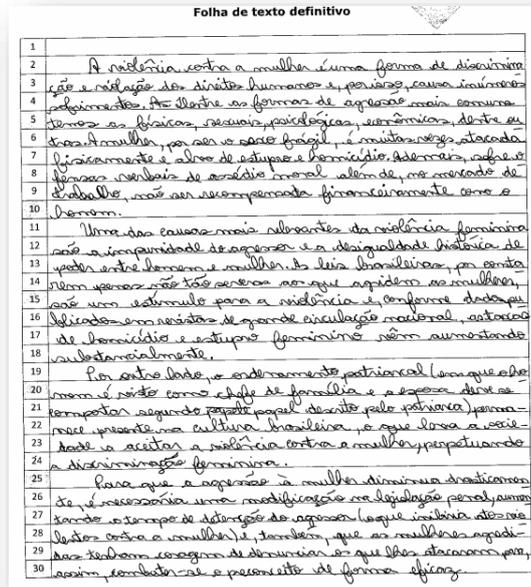 Folha de texto definitivo
1
2 A violência contra a mulher é uma forma de discrimina
3 ção e violação dos direitos humanos e, por isso, causa inúmeros
4 sofrimentos. Dentre as formas de agressão mais comuns
5 temos as físicas, sexuais, psicológicas, econômicas, dentre ou
6 tras. A mulher, por ser o sexo frágil, é muitas vezes atacada
7 fisicamente e alvo de estupro e homicídio. Ademais, sofre o
8 fensas verbais de assédio moral além de, no mercado de
9 trabalho, não ser recompensada financeiramente como o
10 homem.
11 Uma das causas mais relevantes da violência feminina
12 são a impunidade do agressor e a desigualdade histórica de
13 poder entre homem e mulher. As leis brasileiras, por conta
14 rem penas não tão severas aos que agridem as mulheres,
15 são um estímulo para a violência e, conforme dados pu
16 blicados em revistas de grande circulação nacional, as taxas
17 de homicídio e estupro feminino vêm aumentando
18 substancialmente.
19 Por outro lado, o ordenamento patriarcal (em que o ho
20 mem é visto como chefe de família e a esposa deve se
21 comportar segundo papel descrito pelo patriarca), perma-
22 nece presente na cultura brasileira, o que leva a socie-
23 dade a aceitar a violência contra a mulher, perpetuando
24 a discriminação feminina.
25 Para que a agressão à mulher diminua drasticamen
26 te, é necessária uma modificação na legislação penal, aumen
27 tando o tempo de detenção do agressor (o que inibiria atos vio
28 lentos contra a mulher) e, também, que as mulheres agredi
29 das tenham coragem de denunciar os que lhes atacaram para,
30 assim, combater-se o preconceito de forma eficaz.